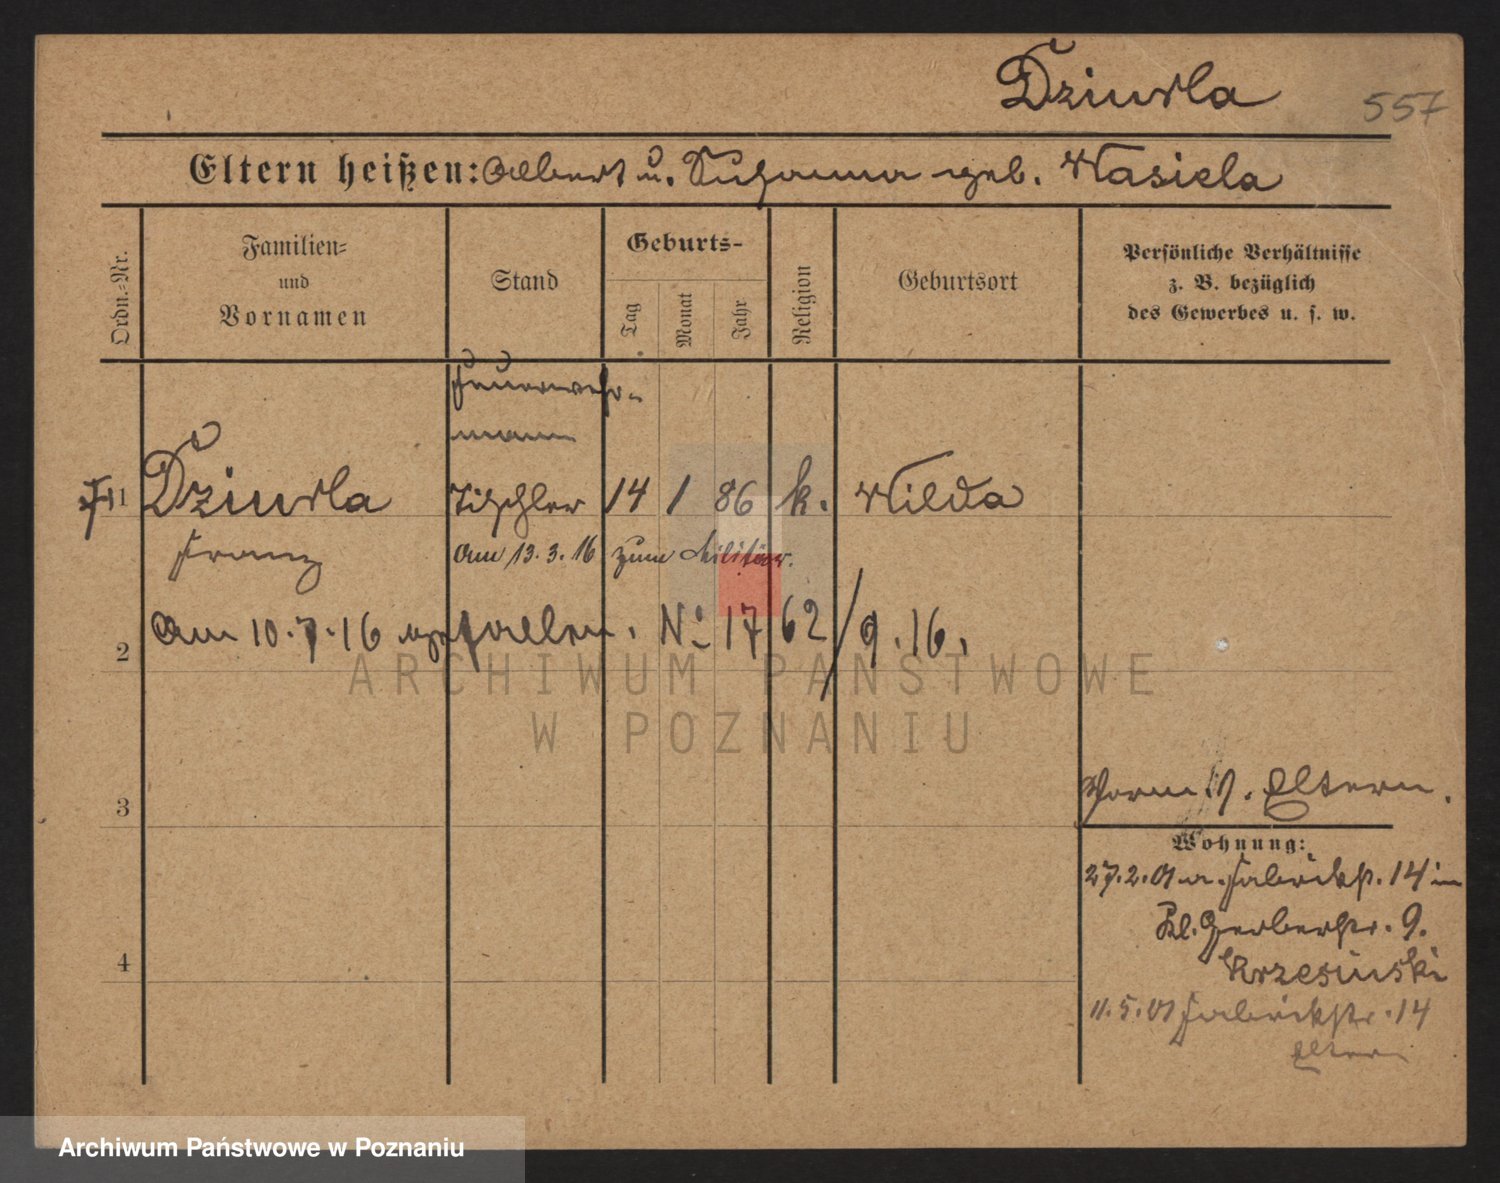 Dziurla
557
Eltern heißen: Albert u. Susanna geb. Wasiela
Ordn.-Nr.
Familien-
und
Vornamen
Stand
Geburts-
Tag
Monat
Jahr
Religion
Geburtsort
Persönliche Verhältnisse
z. B. bezüglich
des Gewerbes u. s. w.
Feuerwehr-
mann
1 Dziurla Tischler 14 1 86 k. Wilda
Franz Am 13.3.16 zum Militär.
2 Am 10.7.16 gefallen. No 1762/9.16.
ARCHIWUM PAŃSTWOWE
W POZNANIU
3
Eltern.
Wohnung:
27.2.01 a. Fabrikstr. 14 in
Kl. Gerberstr. 9.
Krzesinski
4
11.5.01 Fabrikstr. 14
Eltern
Archiwum Państwowe w Poznaniu